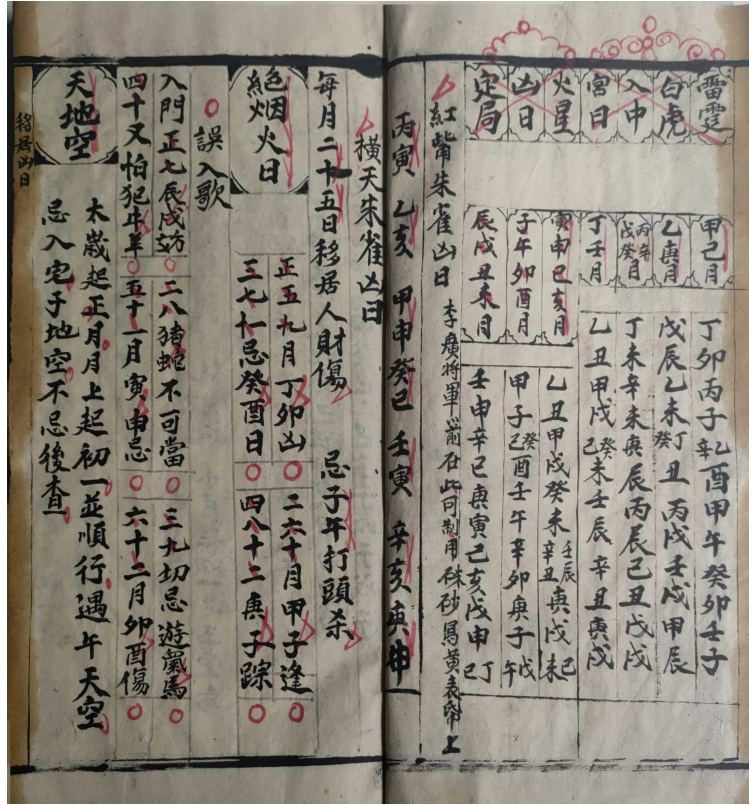 雷霆
白虎
入中
宮日
甲己月
丁卯丙子乙辛酉甲午癸卯壬子
乙庚月
戊辰乙未癸丁丑丙戌壬戌甲辰
丙辛戊癸月
丁未辛未庚辰丙辰己丑戊戌
丁壬月
乙丑甲戌癸己未壬辰辛丑庚戌
火星
凶日
定局
寅申巳亥月
乙丑甲戌癸未壬辰辛丑庚戌己未
子午卯酉月
甲子癸己酉壬午辛卯庚子戊午
辰戌丑未月
壬申辛巳庚寅己亥戊申丁巳
紅嘴朱雀凶日 李廣將軍箭在此可制用硃砂寫黃表帋上
丙寅 乙亥 甲申癸巳 壬寅 辛亥庚申
橫天朱雀凶日
每月二十五日移居人財傷 忌子午打頭杀
絕烟火日
正五九月丁卯凶 二六十月甲子逢
三七十一忌癸酉日 四八十二庚子踪
誤入歌
入門正七辰戌妨 二八猪蛇不可當 三九切忌遊鼠馬
四十又怕犯牛羊 五十一月寅申忌 六十二月卯酉傷
天地空
太歲起正月月上起初一並順行遇午天空
忌入宅子地空不忌後查
移居凶日